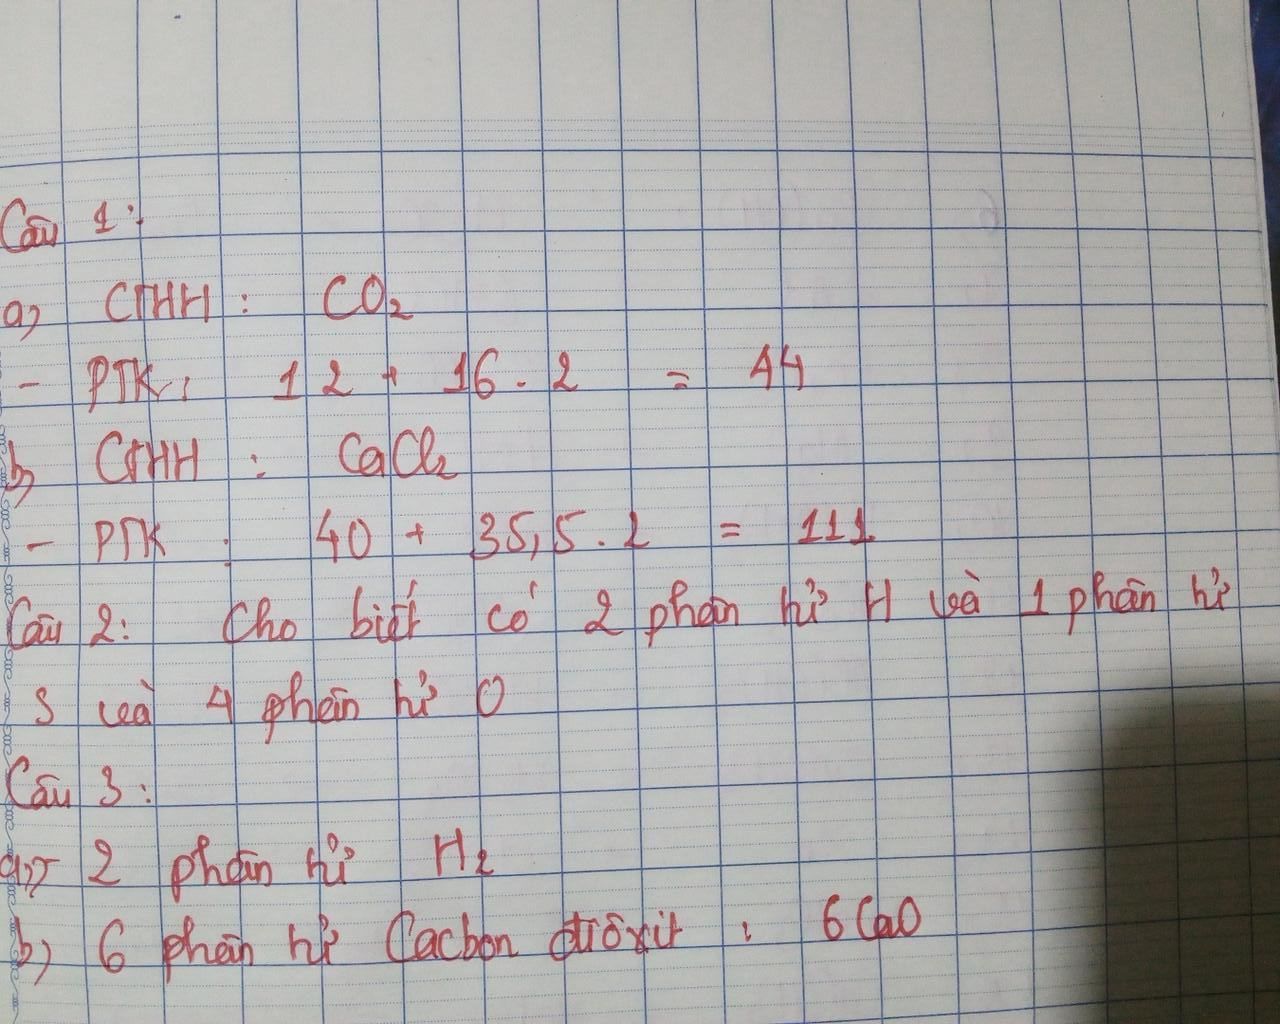 Câu 1:
a) CTHH: CO₂
- PTK: 12 + 16.2 = 44
b) CTHH: CaCl₂
- PTK: 40 + 35,5.2 = 111
Câu 2: Cho biết có 2 phân tử H và 1 phân tử
S và 4 phân tử O
Câu 3:
a) 2 phân tử H₂
b) 6 phân tử Cacbon điôxit: 6CaO